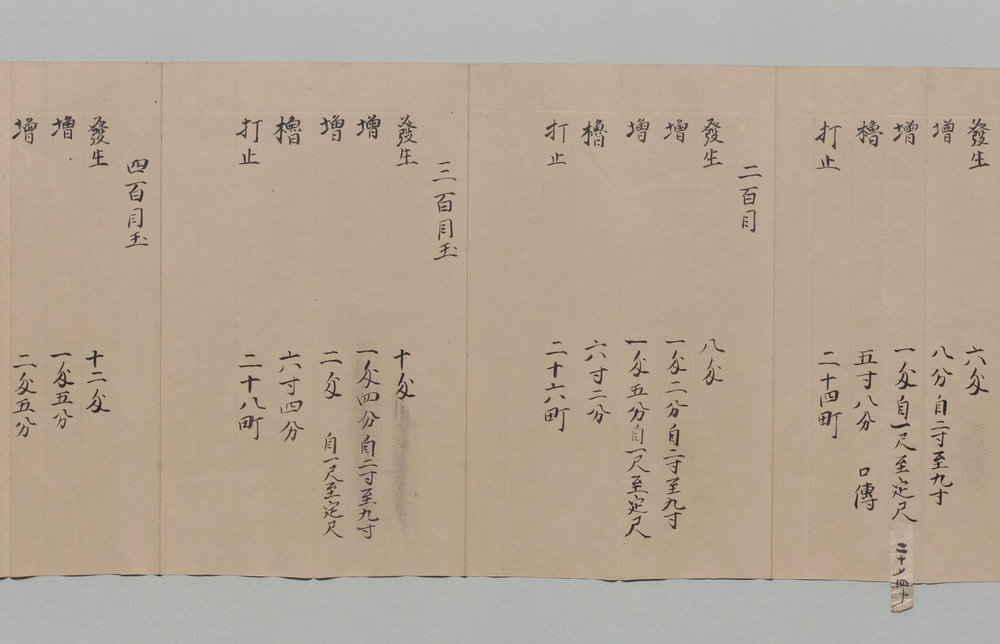 發生 六匁
增 八分自二寸至九寸
增 一匁自一尺至定尺
櫓 五寸八分 口傳
打止 二十四町
二百目
發生 八匁
增 一匁二分自二寸至九寸
增 一匁五分自一尺至定尺
櫓 六寸二分
打止 二十六町
三百目玉
發生 十匁
增 一匁四分自二寸至九寸
增 二匁 自一尺至定尺
櫓 六寸四分
打止 二十八町
四百目玉
發生 十二匁
增 一匁五分
增 二匁五分